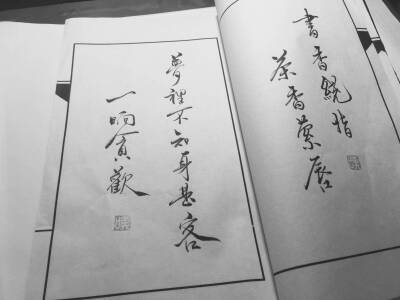 書香繞指
茶香縈唇
夢裡不知身是客
一晌貪歡